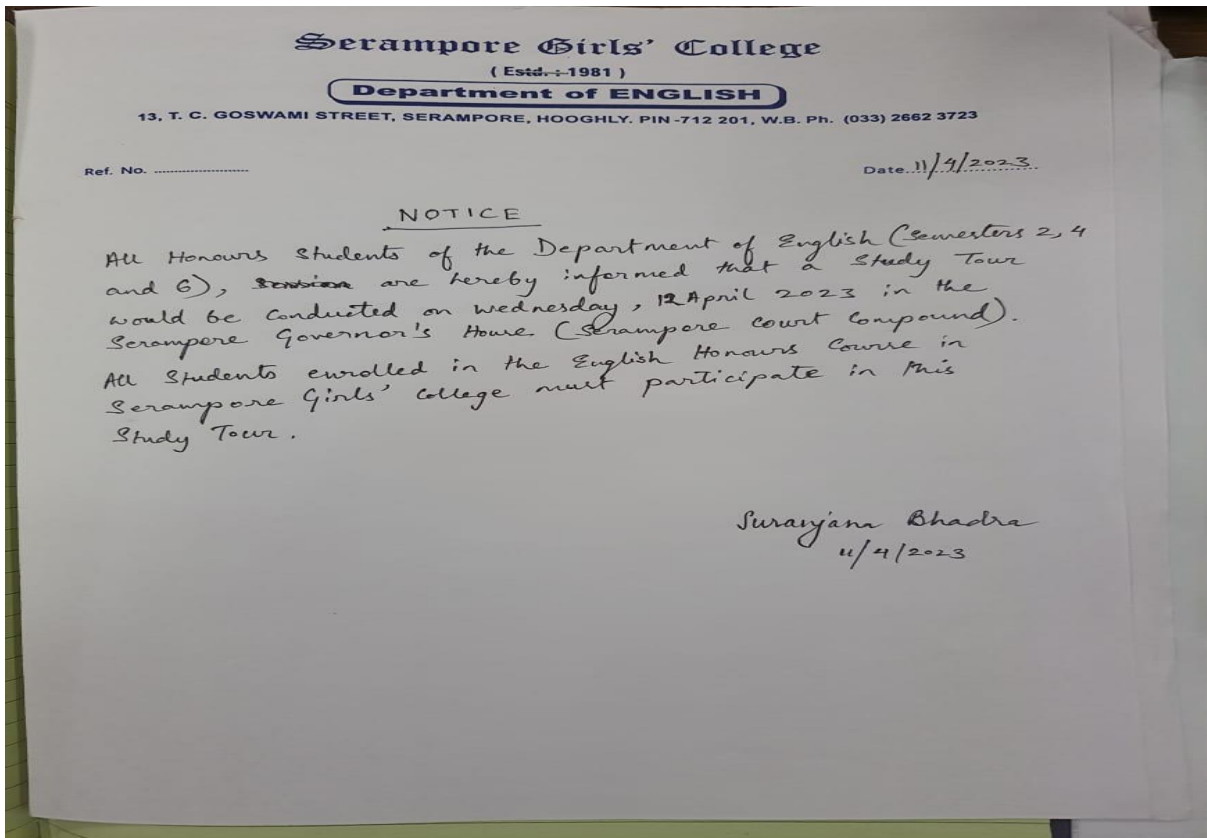 Serampore Girls' College
( Estd. : 1981 )
Department of ENGLISH
13, T. C. GOSWAMI STREET, SERAMPORE, HOOGHLY. PIN -712 201, W.B. Ph. (033) 2662 3723
Ref. No. ........................ Date. 11/4/2023
NOTICE
All Honours Students of the Department of English (Semesters 2, 4
and 6), are hereby informed that a Study Tour
would be conducted on Wednesday, 12 April 2023 in the
Serampore Governor's House (Serampore Court Compound).
All Students enrolled in the English Honours Course in
Serampore Girls' College must participate in this
Study Tour.
Suranjana Bhadra
11/4/2023